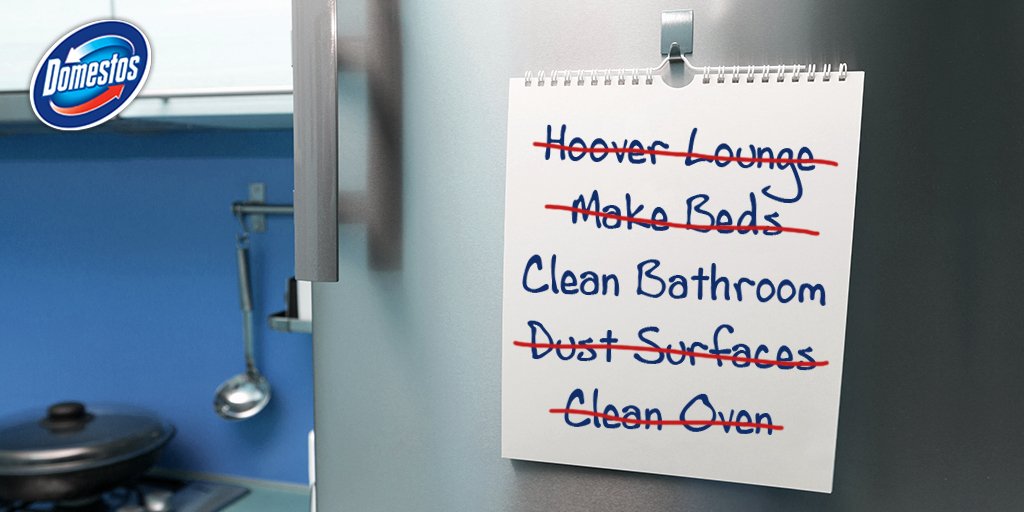 Domestos
Hoover Lounge
Make Beds
Clean Bathroom
Dust Surfaces
Clean Oven